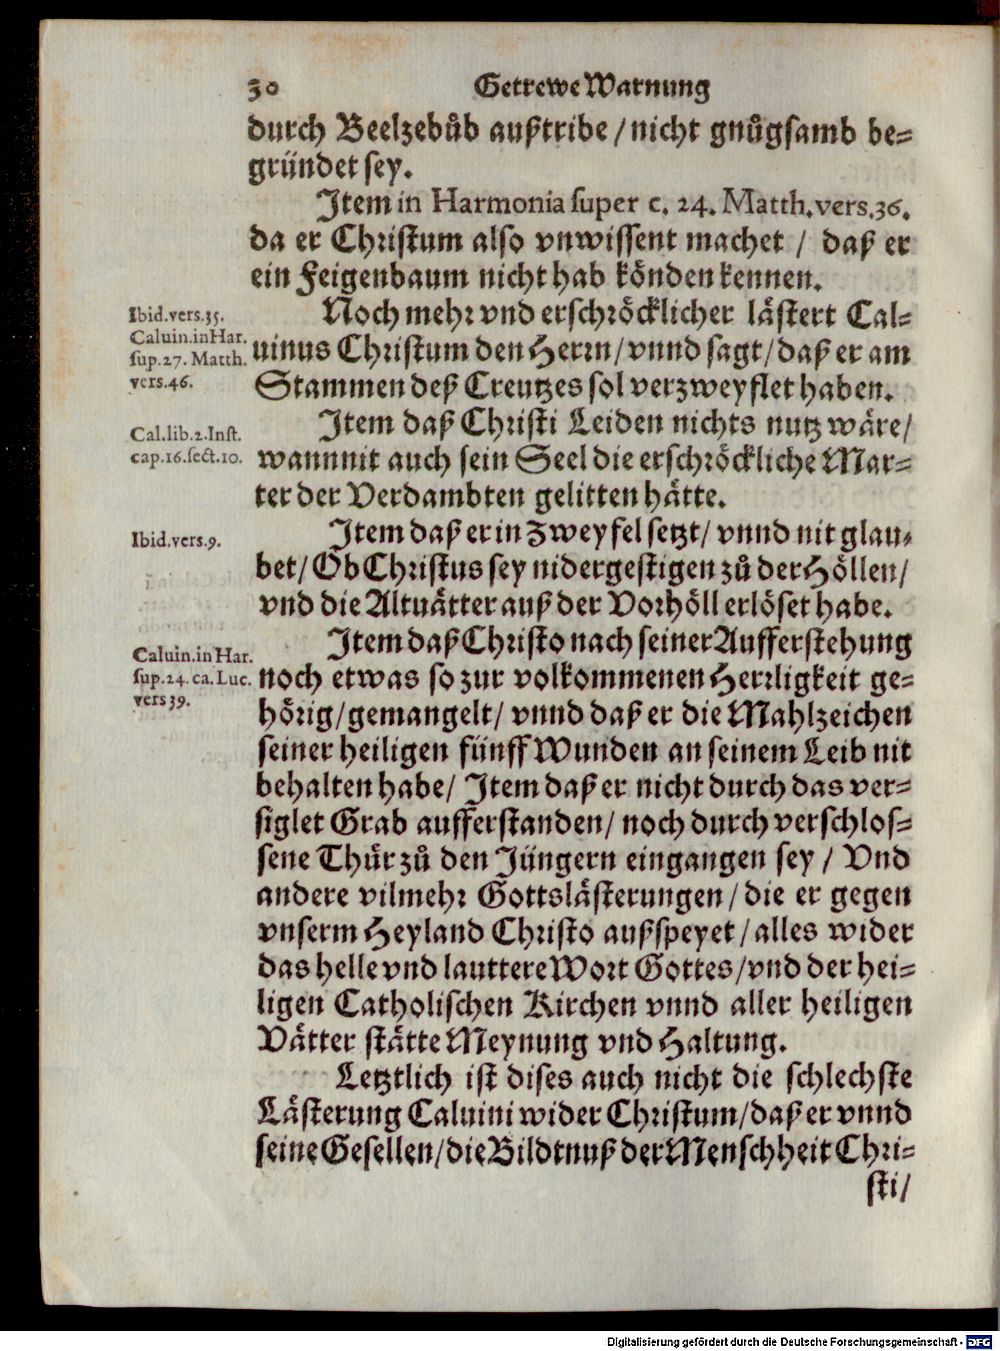 30 Getrewe Warnung
durch Beelzebůb außtribe / nicht gnůgsamb be=
gründet sey.
Item in Harmonia super c. 24. Matth. vers. 36.
da er Christum also vnwissent machet / daß er
ein Feigenbaum nicht hab könden kennen.
Ibid. vers. 35.
Caluin. in Har.
sup. 27. Matth.
vers. 46.
Noch mehr vnd erschröcklicher lästert Cal=
uinus Christum den Herrn / vnnd sagt / daß er am
Stammen deß Creutzes sol verzweyflet haben.
Cal. lib. 2. Inst.
cap. 16. sect. 10.
Item daß Christi Leiden nichts nutz wäre /
wannnit auch sein Seel die erschröckliche Mar=
ter der Verdambten gelitten hätte.
Ibid. vers. 9.
Item daß er in Zweyfel setzt / vnnd nit glau=
bet / Ob Christus sey nidergestigen zů der Höllen /
vnd die Altuätter auß der Vorhöll erlöset habe.
Caluin. in Har.
sup. 24. ca. Luc.
vers 39.
Item daß Christo nach seiner Aufferstehung
noch etwas so zur volkommenen Herrligkeit ge=
hörig / gemangelt / vnnd daß er die Mahlzeichen
seiner heiligen fünff Wunden an seinem Leib nit
behalten habe / Item daß er nicht durch das ver=
siglet Grab aufferstanden / noch durch verschlos=
sene Thür zů den Jüngern eingangen sey / Vnd
andere vilmehr Gottslästerungen / die er gegen
vnserm Heyland Christo außspeyet / alles wider
das helle vnd lauttere Wort Gottes / vnd der hei=
ligen Catholischen Kirchen vnnd aller heiligen
Vätter stätte Meynung vnd Haltung.
Letztlich ist dises auch nicht die schlechste
Lästerung Caluini wider Christum / daß er vnnd
seine Gesellen / die Bildtnuß der Menschheit Chri=
sti /
Digitalisierung gefördert durch die Deutsche Forschungsgemeinschaft - DFG